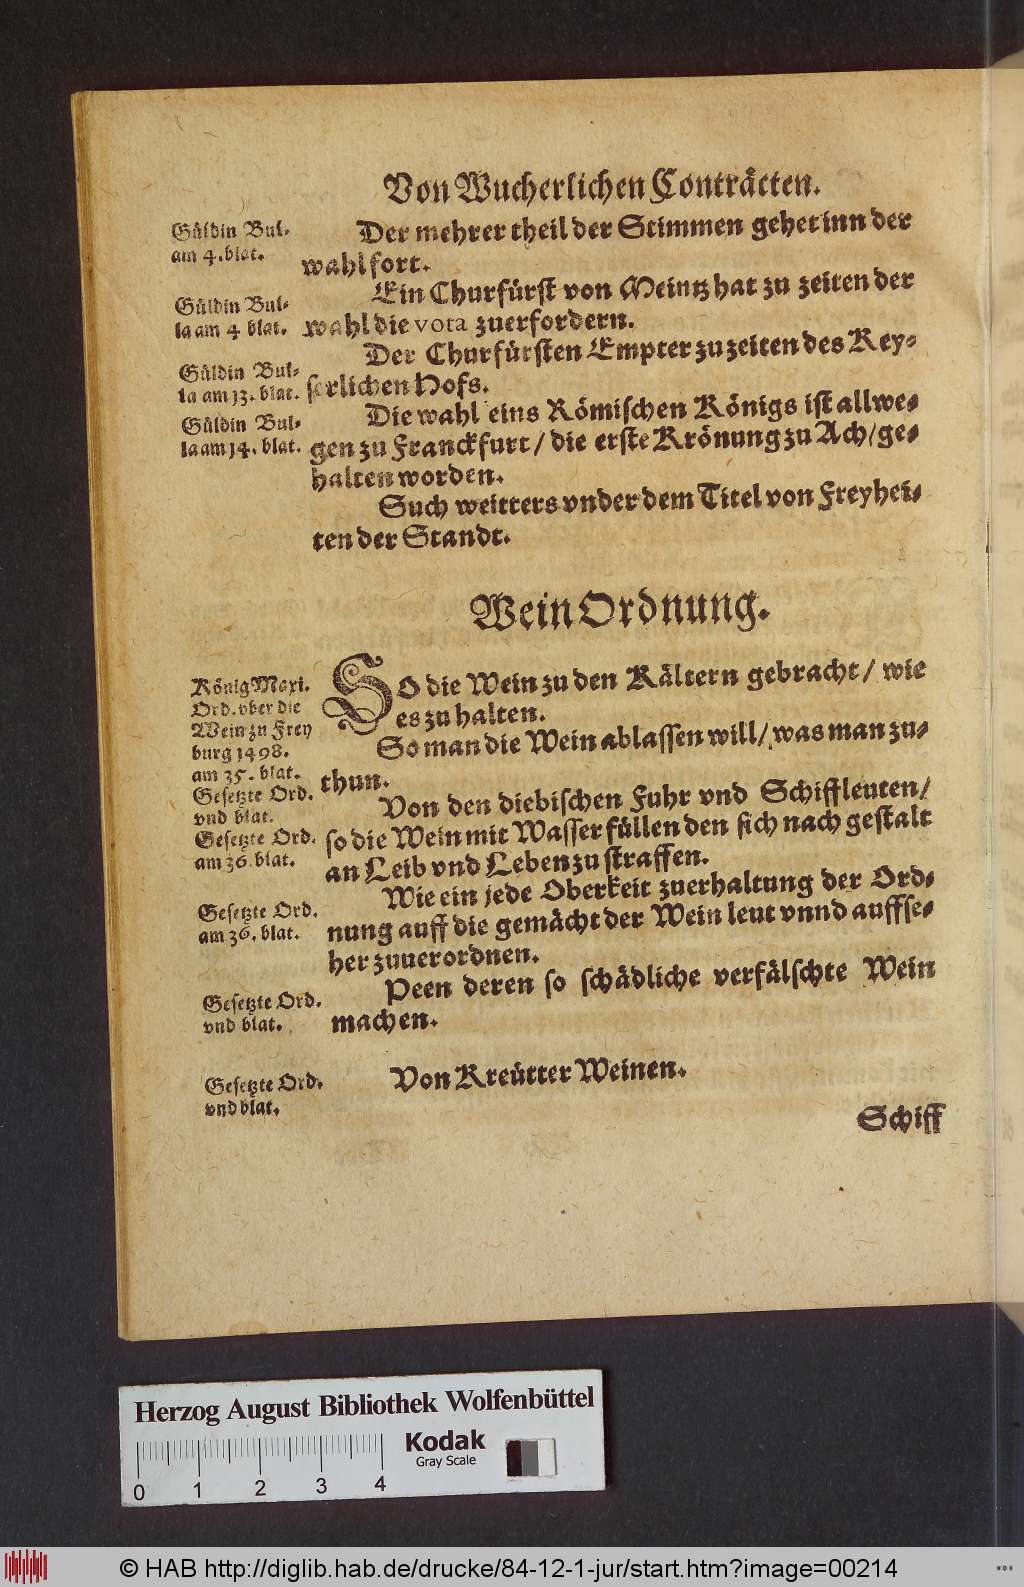 Von Wucherlichen Conträcten.
Güldin Bul-
am 4. blat.
Der mehrer theil der Stimmen gehet inn der
wahl fort.
Güldin Bul-
la am 4 blat.
Ein Churfürst von Meintz hat zu zeiten der
wahl die vota zuerfordern.
Güldin Bul-
la am 13. blat.
Der Churfürsten Empter zu zeiten des Key-
serlichen Hofs.
Güldin Bul-
la am 14. blat.
Die wahl eins Römischen Königs ist allwe-
gen zu Franckfurt / die erste Krönung zu Ach / ge-
halten worden.
Such weitters vnder dem Titel von Freyhei-
ten der Standt.
Wein Ordnung.
König Maxi.
Ord. vber die
Wein zu Frey
burg 1498.
am 35. blat.
SO die Wein zu den Kältern gebracht / wie
es zu halten.
Gesetzte Ord.
vnd blat.
So man die Wein ablassen will / was man zu-
thun.
Gesetzte Ord.
am 36. blat.
Von den diebischen Fuhr vnd Schiffleuten /
so die Wein mit Wasser füllen den sich nach gestalt
an Leib vnd Leben zu straffen.
Gesetzte Ord.
am 36. blat.
Wie ein jede Oberkeit zuerhaltung der Ord-
nung auff die gemächt der Wein leut vnnd auffse-
her zuuerordnen.
Gesetzte Ord.
vnd blat.
Peen deren so schädliche verfälschte Wein
machen.
Gesetzte Ord.
vnd blat.
Von Kreütter Weinen.
Schiff
Herzog August Bibliothek Wolfenbüttel
Kodak
Gray Scale
0 1 2 3 4
© HAB http://diglib.hab.de/drucke/84-12-1-jur/start.htm?image=00214